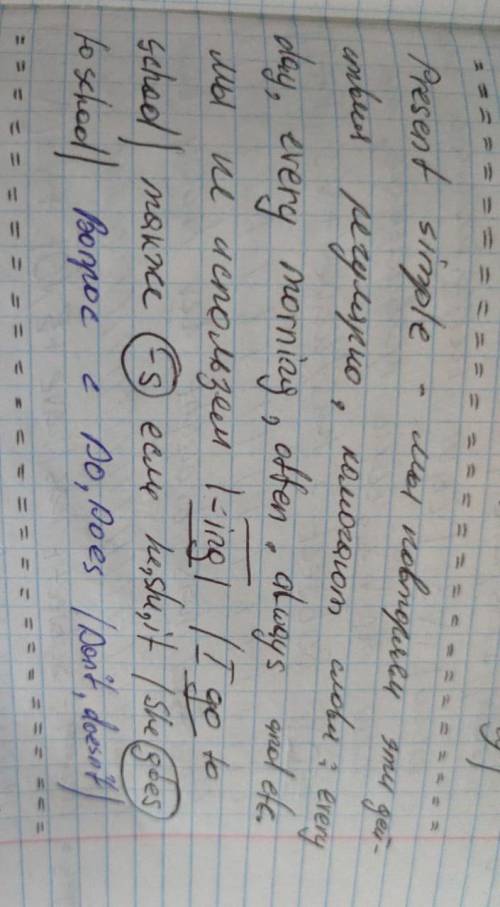 Present simple - мы повторяем эти дей-
ствия регулярно, помогают слова: every
day, every morning, often, always and etc.
мы не используем |-ing| /I go to
school| также -s если he, she, it /She goes
to school| Вопрос с Do, Does /Don't, doesn't|